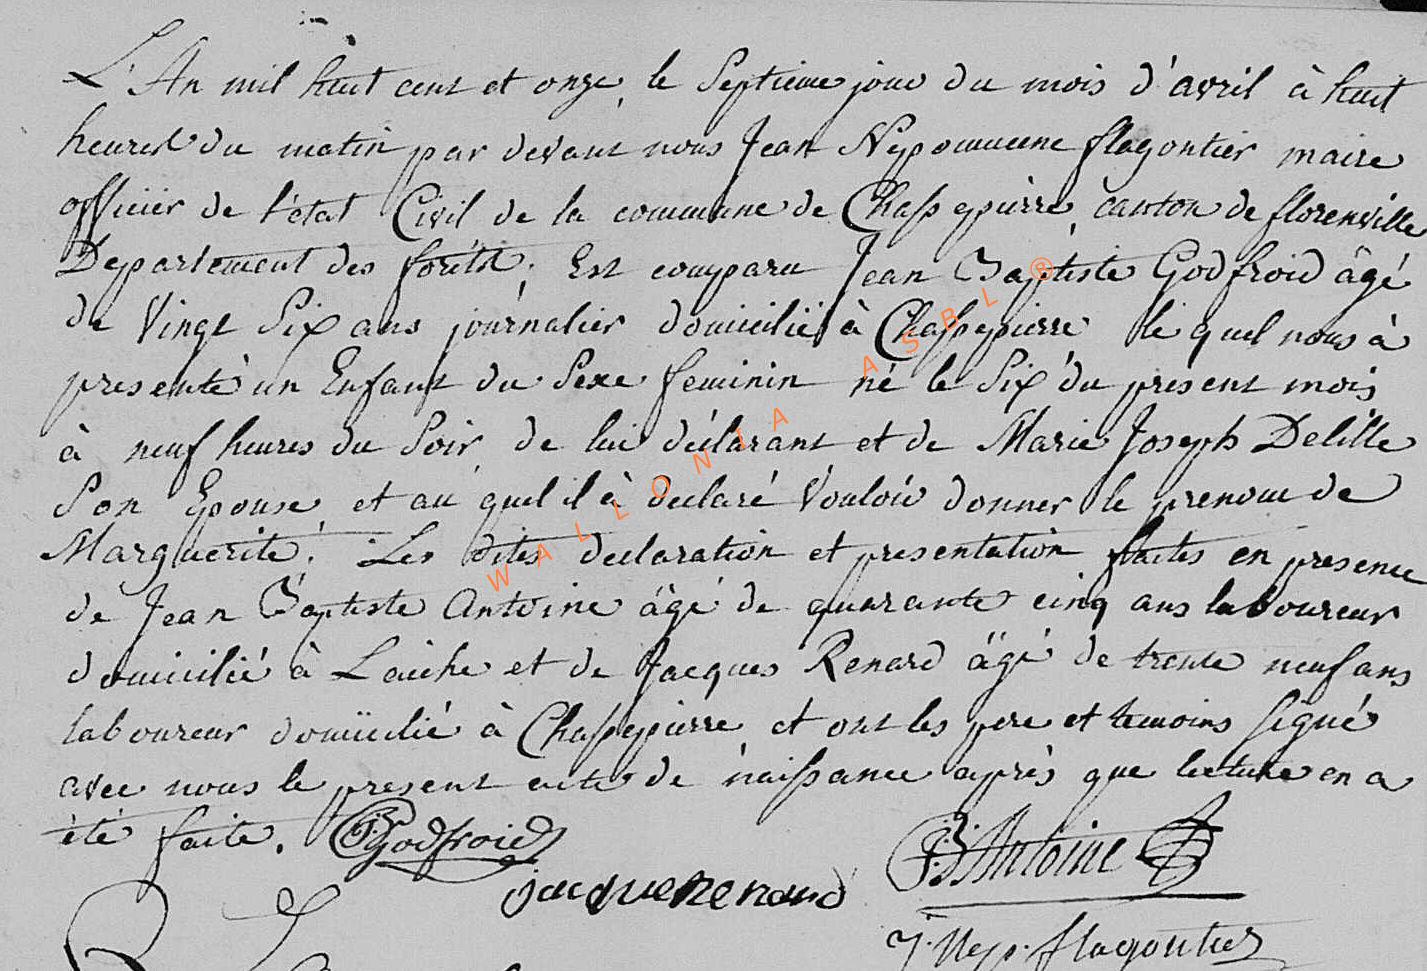 L'An mil huit cent et onze, le Septieme jour du mois d'avril à huit
heures du matin par devant nous Jean Nepomucene flagontier maire
officiér de l'état Civil de la commune de Chassepierre, canton de florenville
Departement des foréts. Est comparu Jean Baptiste Godfroid âgé
de Vingt Six ans journalier domicilié à Chassepierre le quel nous à
presenté un Enfant du Sexe feminin né le Six du present mois
à neuf heures du Soir de lui déclarant et de Marie Joseph Delille
Son Epouse et au quel il à declaré Vouloir donner le prenom de
Marguerite. Les dites declaration et presentation faites en presence
de Jean Baptiste Antoine âgé de quarante cinq ans laboureur
domicilié à Laiche et de Jacques Renard âgé de trente neuf ans
laboureur domicilié à Chassepierre et ont les pere et temoins signé
avec nous le present acte de naissance après que lecture en a
été faite. JBGodfroid
JBAntoine
jacque Renard
J. Nep. flagontier
WALLONIA ASBL ®